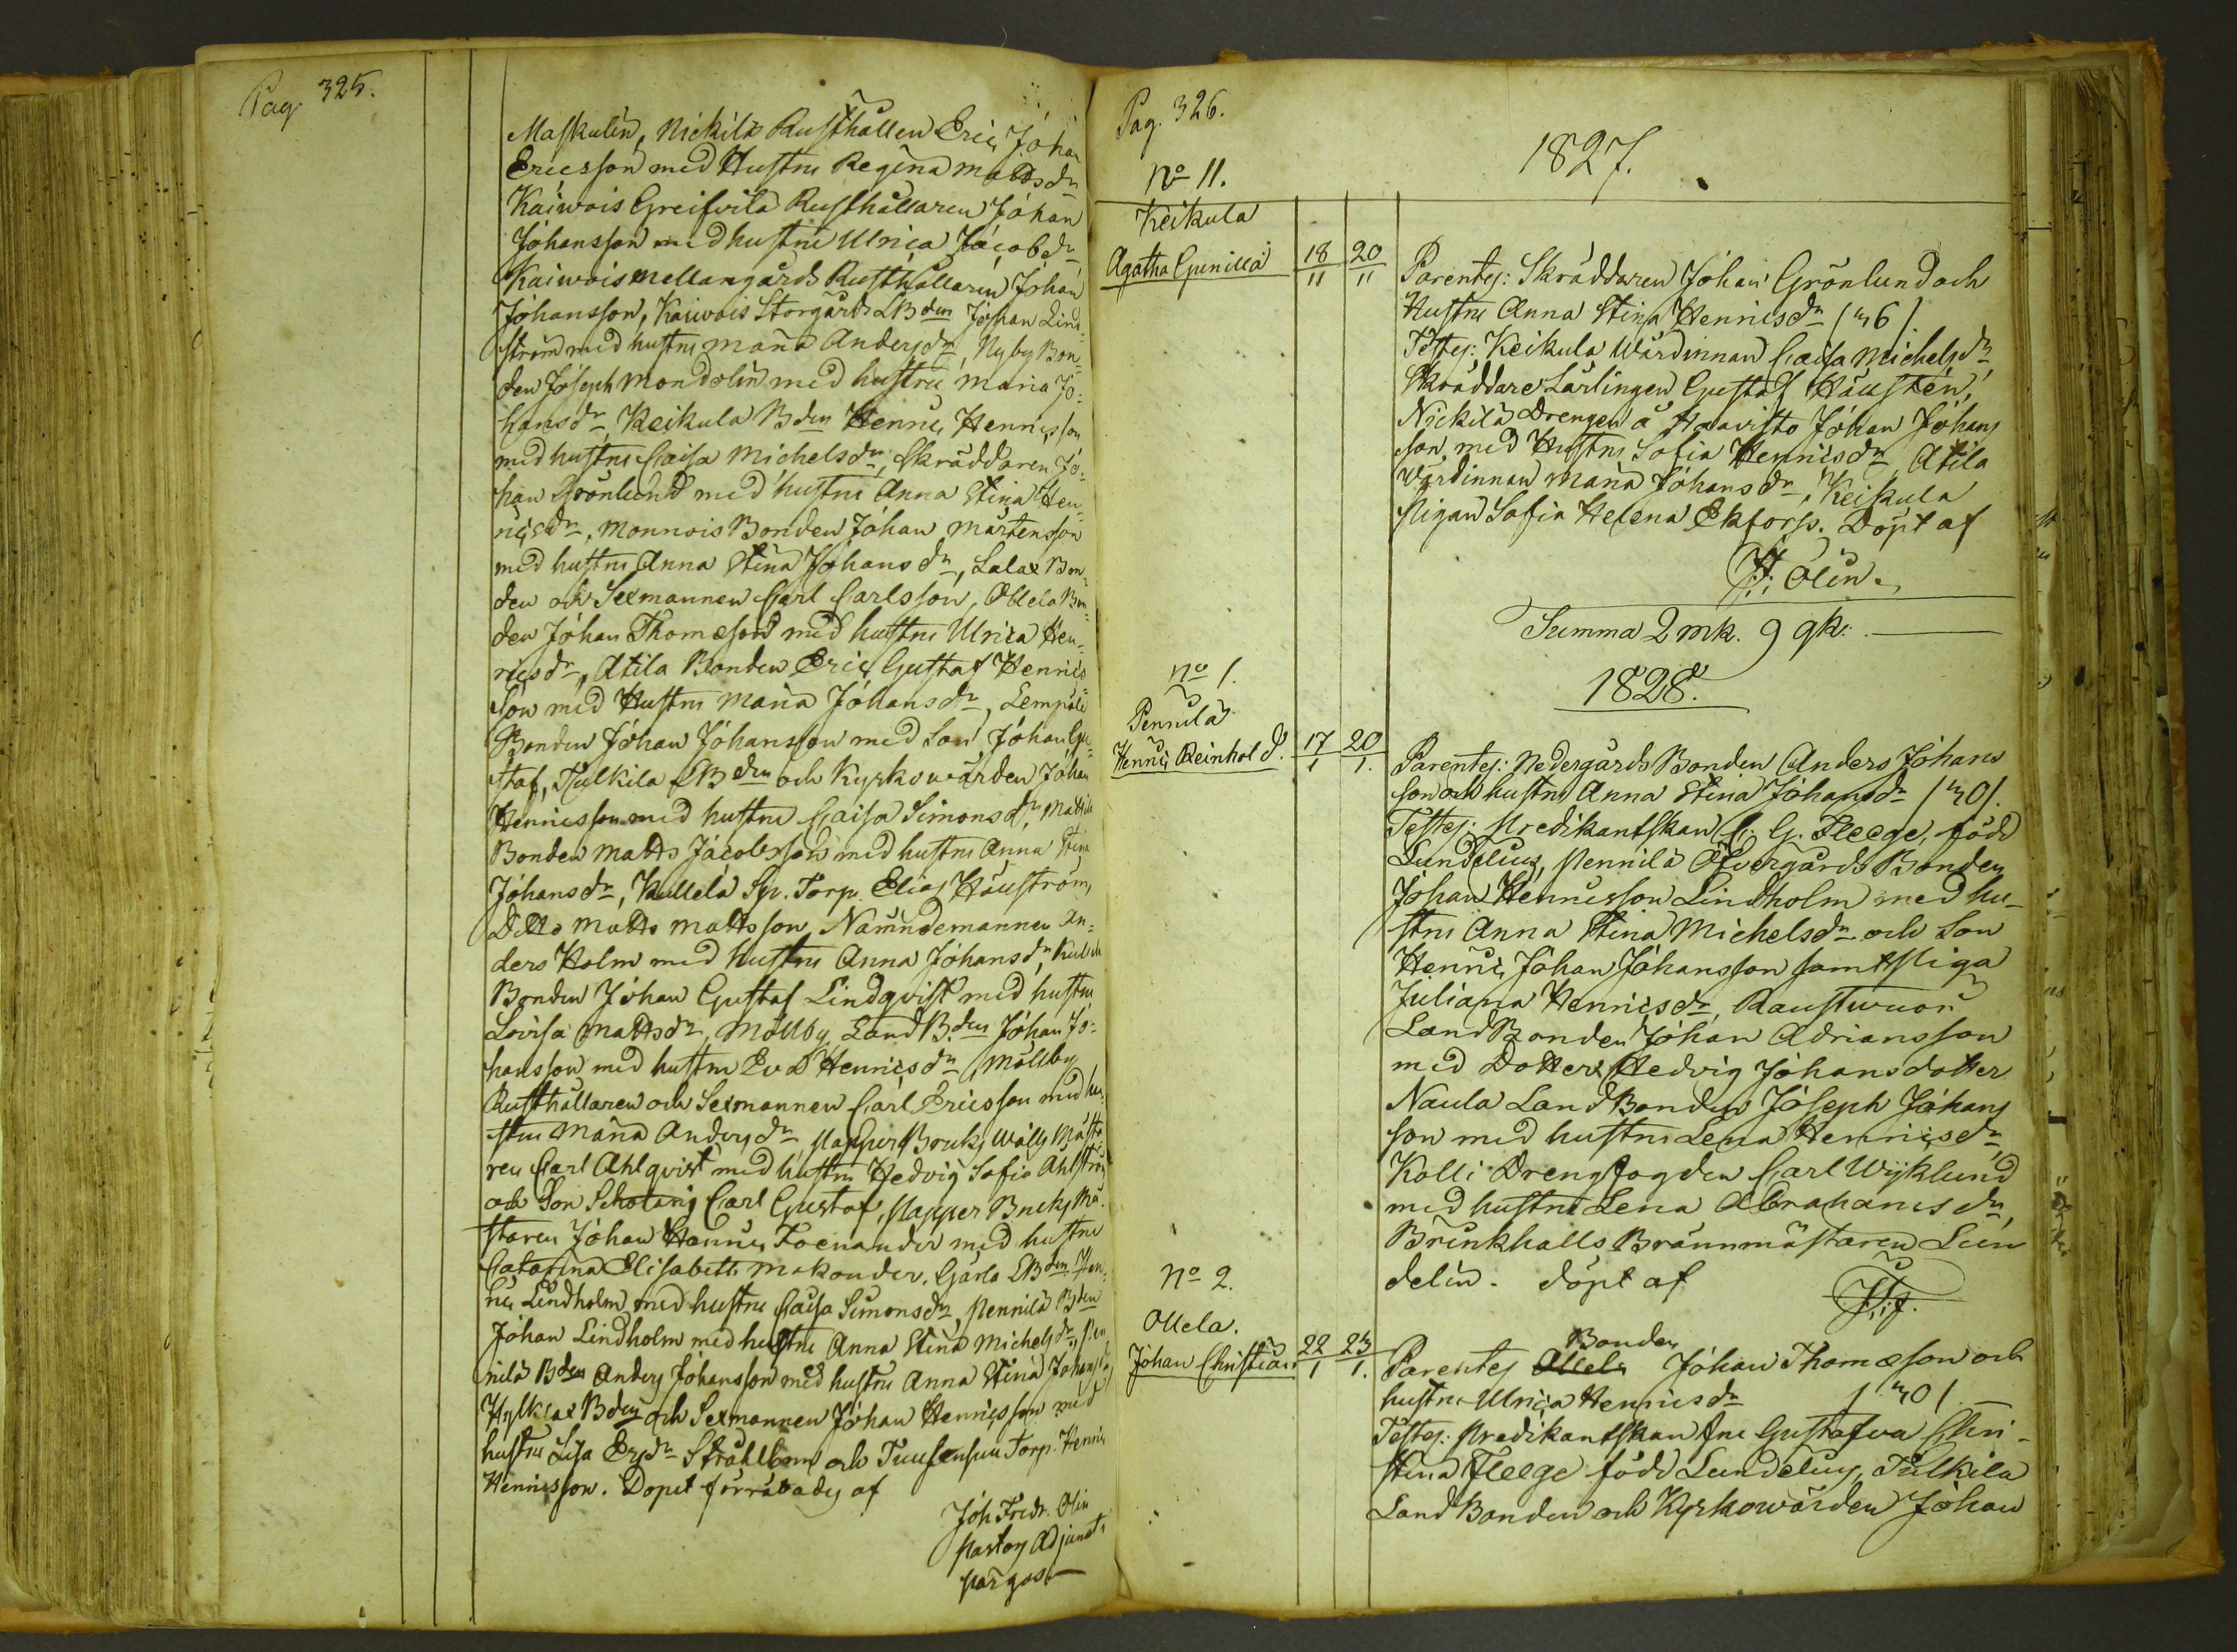 Pag. 325.
Maskulin, Nickilä Rusthållen Eric Johan
Ericsson med Hustru Regina Mattsdr
Kaiwois Greifvila Rusthållaren Johan
Johansson med hustru Ulrica Jacobsdr
Kaiwois Mellangårds Rusthållaren Johan
Johansson, Kaiwois Storgårds LBden Johan Lind-
ström med hustru Maria Andersdr, Nyby Bon-
den Joseph Mondolin med hustru Maria Jo-
hansdr, Keikula Bden Henric Henricsson
med hustru Caisa Michelsdr, Skräddaren Jo-
han Grönlund med hustru Anna Stina Hen-
ricsdr, Monnois Bonden Johan Mårtensson
med hustru Anna Stina Johansdr, Lalax Bon-
den och Sexmannen Carl Carlsson, Ollela Bon-
den Johan Thomæson med hustru Ulrica Hen-
ricsdr, Atila Bonden Eric Gustaf Henrics
son med Hustru Maria Johansdr, Lempälä
Bonden Johan Johansson med Son Johan Gu-
staf, Tulkila LBden och Kyrkowärden Johan
Henricsson med hustru Caisa Simonsdr, Mattila
Bonden Matts Jacobsson med hustru Anna Stina
Johansdr, Kullela Sp. Torp. Elias Häuström,
Ditto Matts Mattsson, Nämndemannen An-
ders Holm med hustru Anna Johansdr,
Bonden Johan Gustaf Lindqvist med hustru
Lovisa Mattsdr, Mölby Land B.den Johan Jo-
hansson med hustru Eva Henricsdr Mölby
Rusthållaren och Sexmannen Carl Ericsson med hu-
stru Maria Andersdr, Pappers Bruks Wälls Mästa
ren Carl Ahlqvist med hustru Hedvig Sofia Ahlström
och Son Scholaris Carl Gustaf, Papper Bruks Mä-
staren Johan Henric Foenander med hustru
Catarina Elisabeth Makonder, Gärla LBden Hen-
ric Lindholm med hustru Caisa Simonsdr, Pennilä Bden
Johan Lindholm med hustru Anna Stina Michelsdr, Pen
nilä Bden Anders Johansson med hustru Anna Stina Johansdr
Hylkiax Bden och Sexmannen Johan Henricsson med
hustru Lisa Ersdr Stråhlborn och Torp. Henric
Henricsson. Döpet förrättades af
Joh Fredr. Olin
Pastors Adjunct i
Pargas
Pag. 326.
1827.
No 11.
Keikula
Agatha Gunilla 18/11 20/11
Parentes: Skräddaren Johan Grönlund och
Hustru Anna Stina Henricsdr / 36 /.
Testes: Keikula Wärdinnan Caisa Michelsdr,
Skräddare Lärlingen Gustaf Häustén,
Nickilä Drengen å Haavisto Johan Johans
son, med Hustru Sofia Henricsdr, Atila
Wärdinnan Maria Johansdr, Keikula
Pigan Sofia Helena Ekforss. Döpt af
J: F: Olin.
Summa 2 mk. 9 qk:
1828.
No 1.
Pennilä
Henric Reinhold. 17/1 20/1.
Parentes: Nedergårds Bonden Anders Johans
son och hustru Anna Stina Johansdr / 30 /.
Testes: Predikantskan C: G. Fleege, född
Lundelius, Pennilä Öfvergårds Bonden
Johan Henricsson Lindholm med hu-
stru Anna Stina Michelsdr och Son
Henric Johan Johansson samt Piga
Juliana Henricsdr, Raustwuori
Land Bonden Johan Adriansson
med Dotter Hedvig Johansdotter
Naula Land Bonden Joseph Johans
son med hustru Lena Henricsdr,
Kolli Drengfogden Carl Wijklund
med hustru Lena Abrahamsdr,
Brinkhalls Brännmästaren Lun
delin. döpt af
No 2.
Ollela.
Johan Christian 22/1 23/1.
Parentes Ollela Bonden Johan Thomæson och
hustru Ulrica Henricsdr / 30 /
Testes: Predikantskan Fru Gustafva Chri-
stina Fleege född Lundelius, Tulkila
Land Bonden och Kyrkowärden Johan